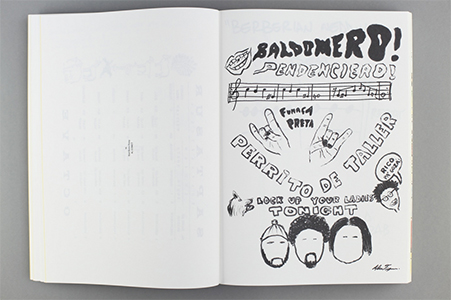 BALDOMERO!
PENDENCIERO!
FUMAÇA
PRETA
PERRITO DE TALLER
LOCK UP YOUR LADIES
TONIGHT